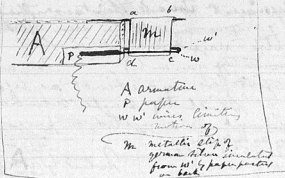 a b
A m w'
P d c w
A armature
P paper
W W' wires limiting
motion of
m metallic strip of
german silver insulated
from w' by paper pasted
on back